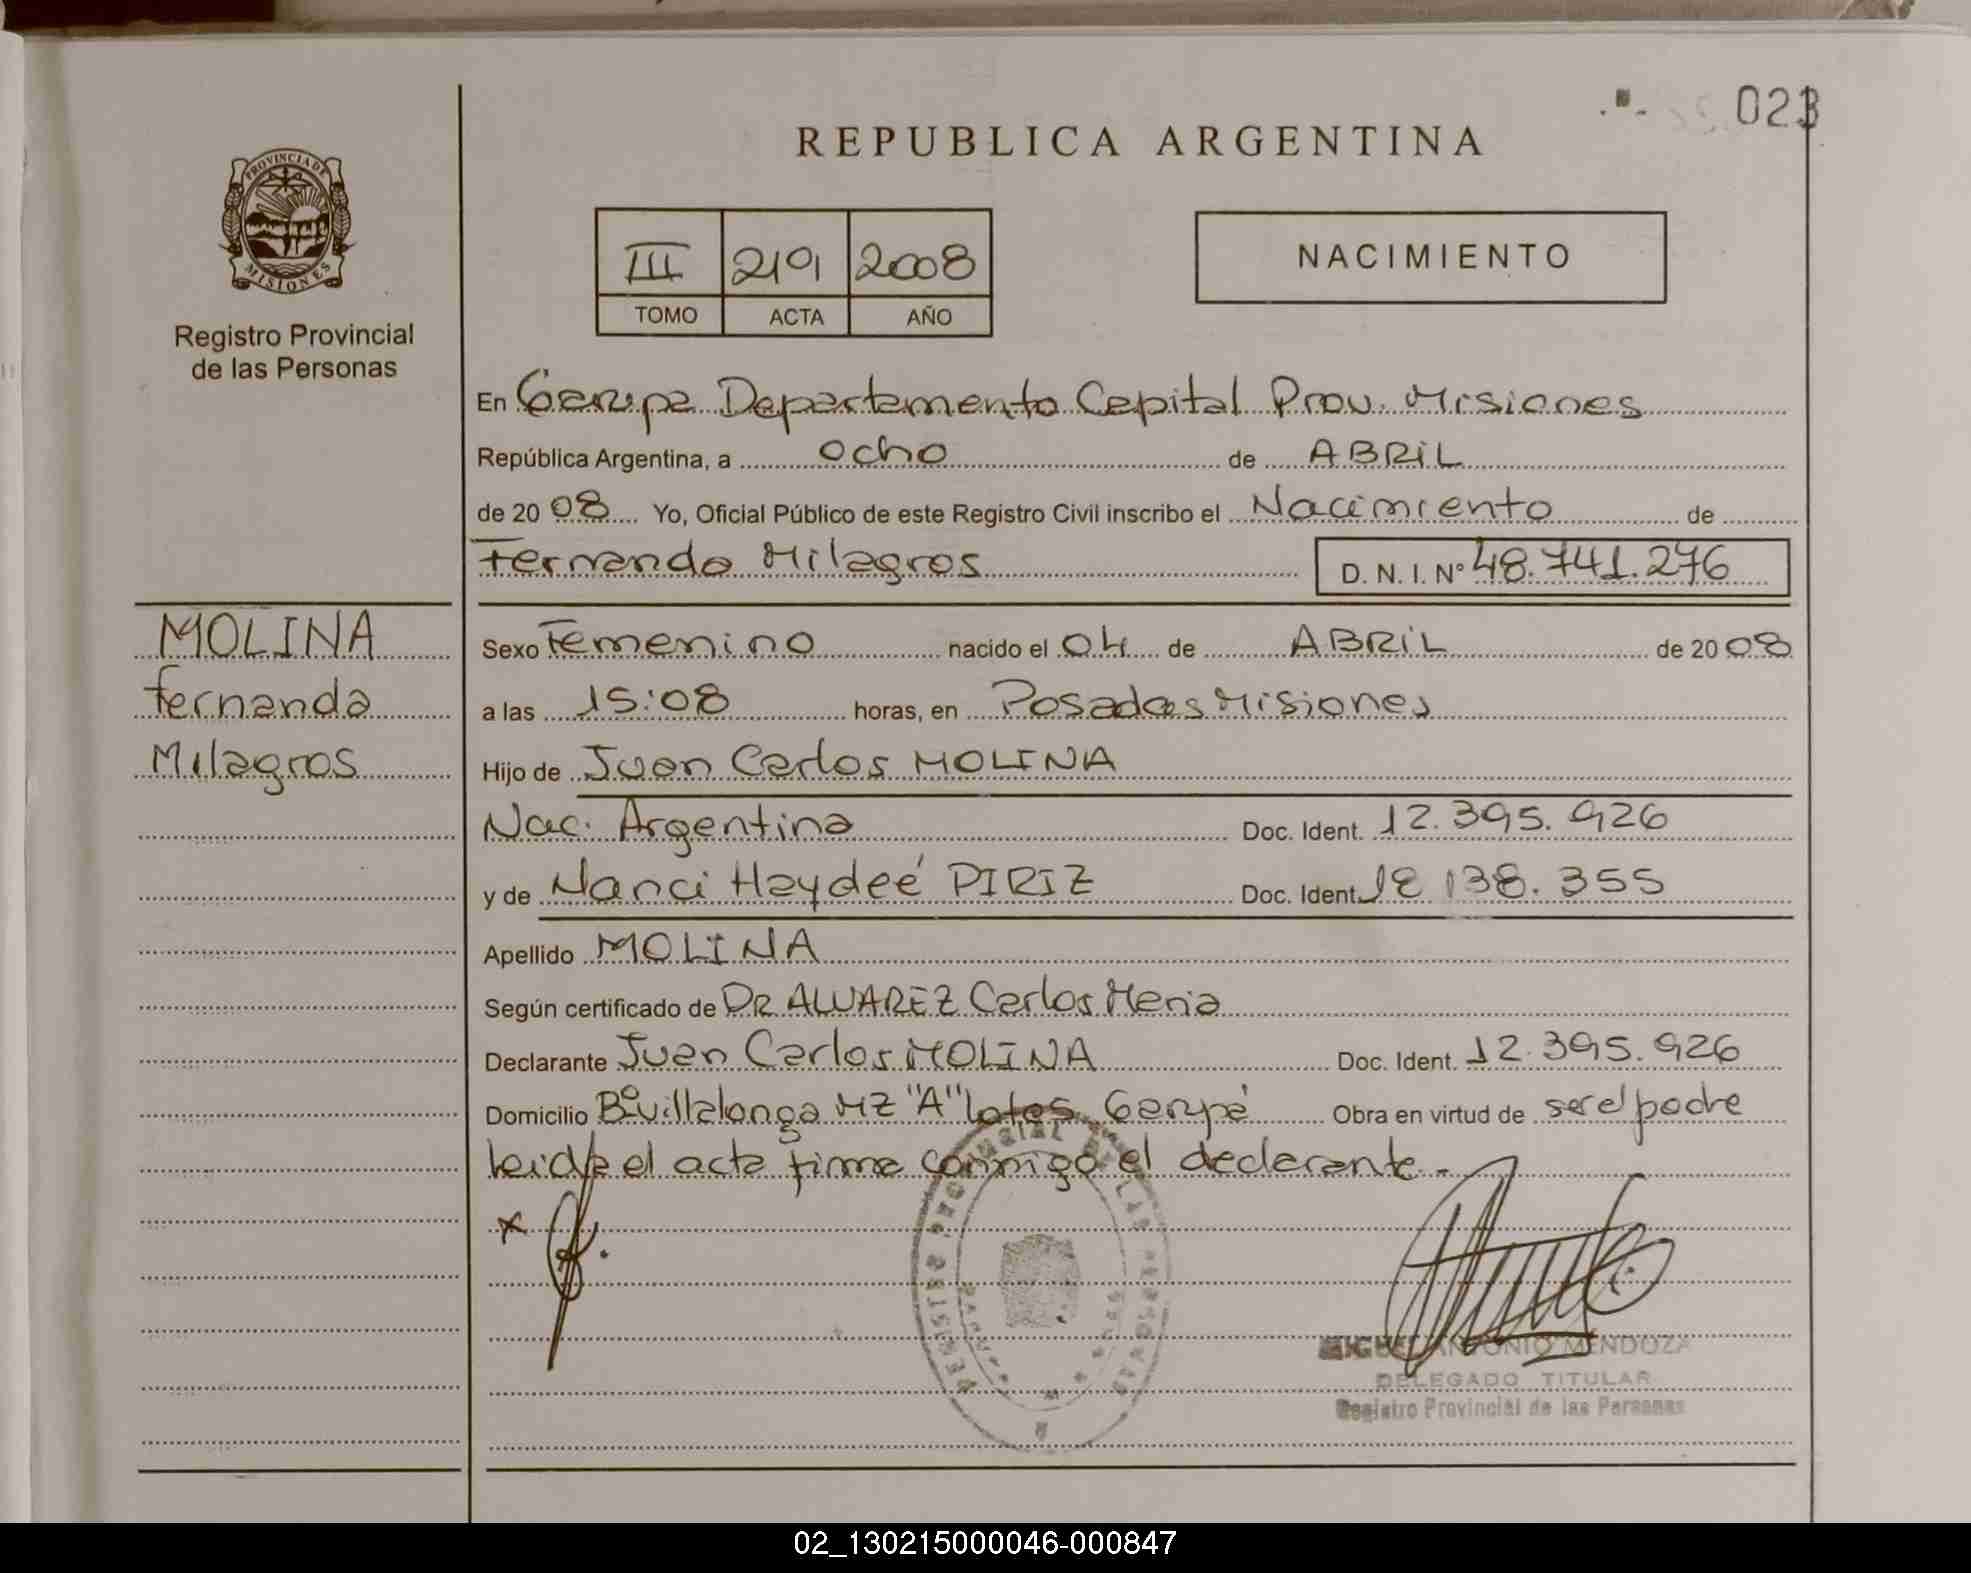 023
REPUBLICA ARGENTINA
PROVINCIA DE MISIONES
Registro Provincial
de las Personas
III 2191 2008
TOMO ACTA AÑO
NACIMIENTO
En Garupa Departamento Capital Prov. Misiones
República Argentina, a ocho de ABRIL
de 20 08 Yo, Oficial Público de este Registro Civil inscribo el Nacimiento de
Fernanda Milagros D. N. I. N° 48.741.276
MOLINA
Fernanda
Milagros
Sexo Femenino nacido el 04 de ABRIL de 20 08
a las 15:08 horas, en Posadas Misiones
Hijo de Juan Carlos MOLINA
Nac. Argentina Doc. Ident. 12.395.926
y de Nanci Haydeé PIRIZ Doc. Ident. 18 138.355
Apellido MOLINA
Según certificado de DR ALVAREZ Carlos Maria
Declarante Juan Carlos MOLINA Doc. Ident. 12.395.926
Domicilio B° Villalonga MZ "A" lote Garupá Obra en virtud de ser el padre
leida el acta firma conmigo el declarante.
x
MIGUEL ANTONIO MENDOZA
DELEGADO TITULAR
Registro Provincial de las Personas
02_130215000046-000847